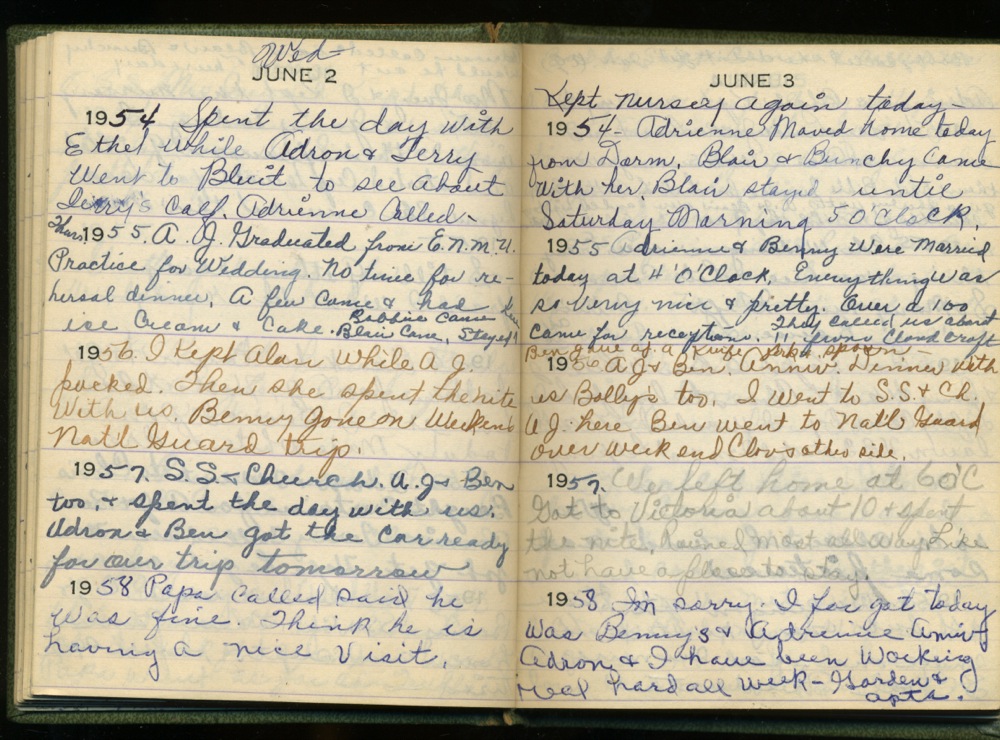 Wed
JUNE 2
1954 Spent the day with
Ethel while Adron & Terry
went to Bluit to see about
Terry's calf. Adrienne called-
Thurs. 1955. A. J. Graduated from E.N.M.U.
Practice for Wedding. No time for re-
hersal dinner. A few came & had
ise cream & cake. Bobbie came
Blair came, stayed
1956. I kept Alan while A J.
packed. Then she spent the nite
with us. Benny gone on weekend
Natl Guard trip.
1957. S.S. & Church. A.J & Ben
too, & spent the day with us.
Adron & Ben got the car ready
for our trip tomorrow
1958 Papa called said he
was fine. Think he is
having a nice visit.
JUNE 3
Kept nursery again today-
1954- Adrienne Moved home today
from Dorm. Blair & Bunchy came
with her. Blair stayed until
Saturday Morning 5 O'clock.
1955 Adrienne & Benny were Married
today at 4 'O'Clock. Everything was
so very nice & pretty. Over a 100
came for reception. They called us about
11 from Cloud croft
Ben gave AJ. a Knife fork & spoon-
1956 A J & Ben. Anniv Dinner with
us Bolly's too. I went to S.S. & Ch.
A J. here Ben went to Natl Guard
over week end Clovis other side.
1957. We left home at 6 o'C
Got to Victoria about 10 & spent
the nite, rained most all way. Like
not have a place to stay.
1958 I'm sorry. I for got today
was Benny's & Adrienne Anniv
Adron & I have been Working
real hard all week- Garden &
apts.